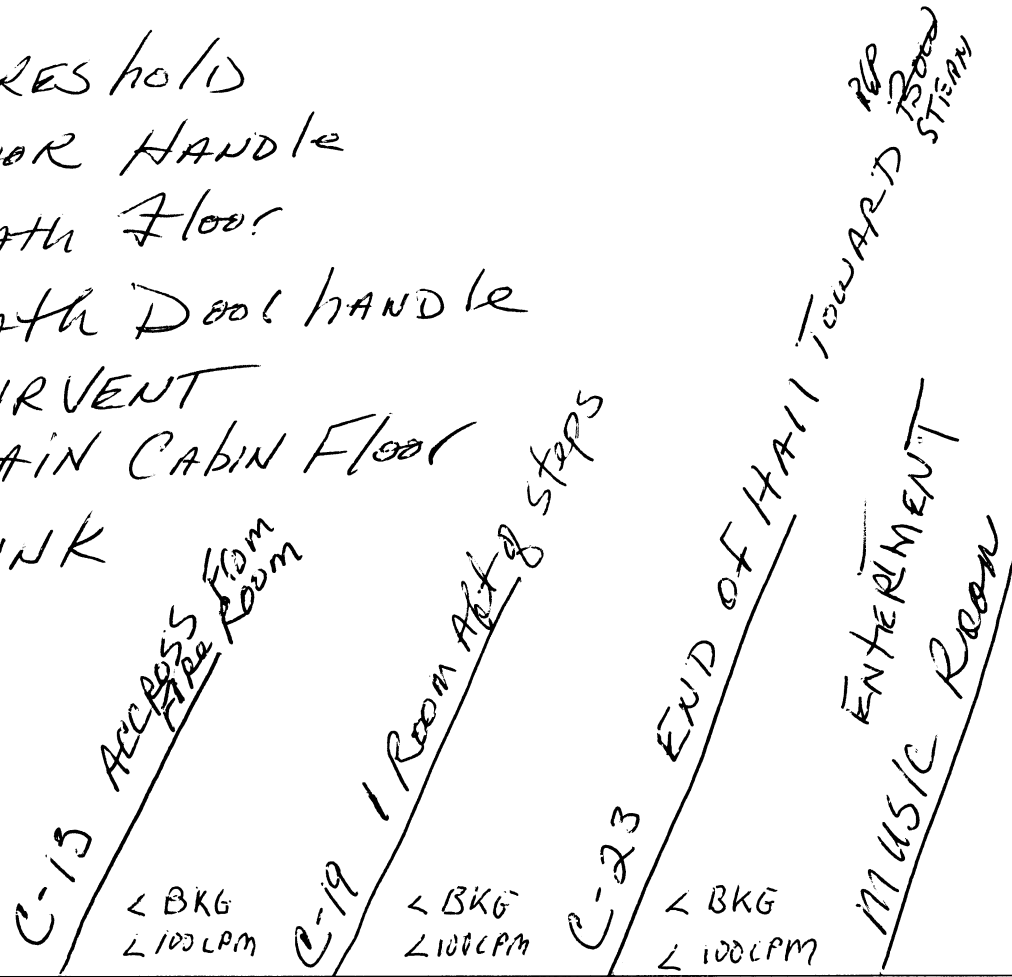 RESholD
OOR HANDle
ath Floor
ath Door hANDle
IRVENT
AIN CAbiN Floor
INK
C-13 ACCROSS From
Fire Room
< BKG
< 100 CPM
C-19 1 Room Aft of Steps
< BKG
< 100 CPM
C-23 END OF HAll TOWARD
STERN
< BKG
< 100 CPM
MUSIC Room
ENTERIMENT